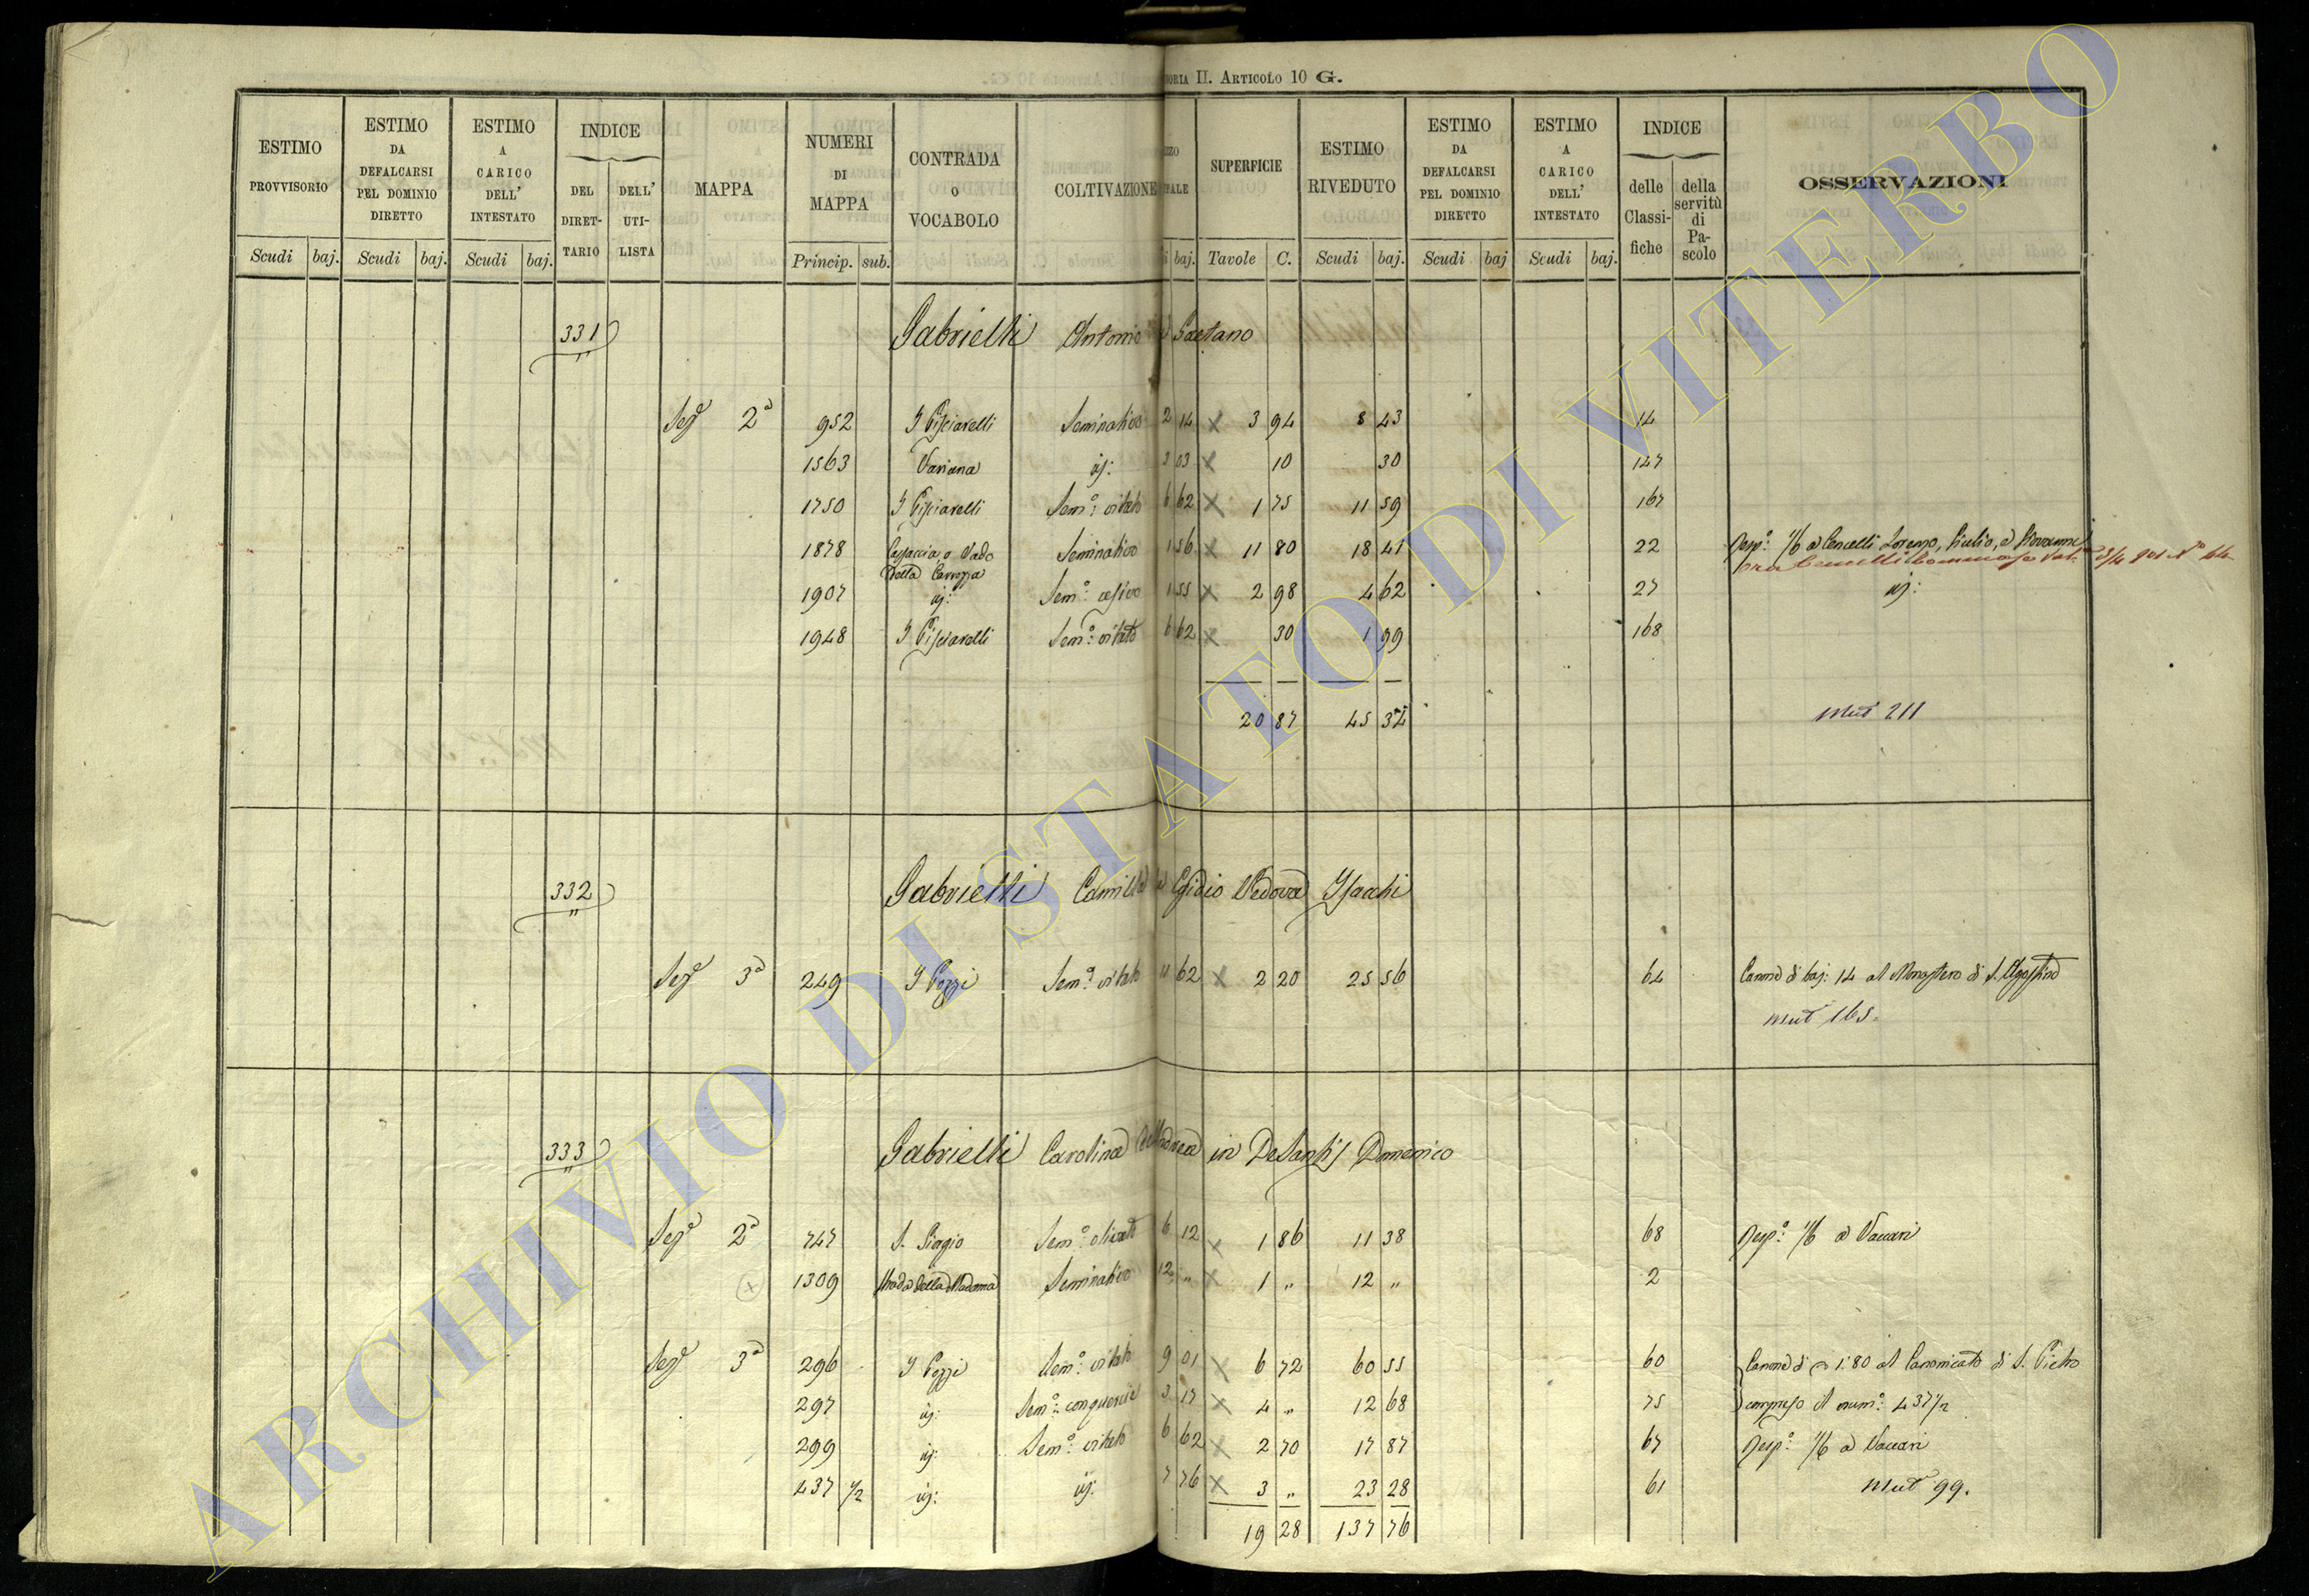 ORIA II. ARTICOLO 10 G.
ESTIMO PROVVISORIO | ESTIMO DA DEFALCARSI PEL DOMINIO DIRETTO | ESTIMO A CARICO DELL' INTESTATO | INDICE DEL DIRETTARIO | DELL' UTILISTA | MAPPA | NUMERI DI MAPPA | CONTRADA O VOCABOLO | COLTIVAZIONE | SUPERFICIE | ESTIMO RIVEDUTO | ESTIMO DA DEFALCARSI PEL DOMINIO DIRETTO | ESTIMO A CARICO DELL' INTESTATO | INDICE delle Classifiche | della servitù di Pascolo | OSSERVAZIONI
Scudi baj. | Scudi baj. | Scudi baj. | Princip. sub. | baj. | Tavole C. | Scudi baj. | Scudi baj | Scudi baj.
331 Gabrielli Antonio Gaetano
Sez.e 2a 952 I Pisciarelli Seminativo 2 14 x 3 94 8 43 14
1563 Variana id: 3 03 x 10 30 147
1750 I Pisciarelli Sem.o vitato 6 62 x 1 75 11 59 167
1878 o Vado della Seminativo 1 56 x 11 80 18 41 22 Resp.o 1/6 a Cencelli Lorenzo, Giulio, e Giovanni
1907 id: Sem.o 1 55 x 2 98 4 62 27 id:
1948 I Pisciarelli Sem.o vitato 6 62 x 30 1 99 168
20 87 45 34 Mut 211
332 Gabrielli Camilla Egidio Vedova Isacchi
Sez.e 3a 249 I Pozzi Sem.o vitato 11 62 x 2 20 25 56 64 Canone di baj: 14 al Monastero di S. Agostino
Mut 165.
333 Gabrielli Carolina in De Santis Domenico
Sez.e 2a 747 S. Biagio Sem.o olivato 6 12 x 1 86 11 38 68 Resp.o 1/6 a Vaccari
x 1309 Strada della Madonna Seminativo 12 " x 1 " 12 " 2
Sez.e 3a 296 I Pozzi Sem.o vitato 9 01 x 6 72 60 55 60 Canone di 1:80 al Canonicato di S. Pietro
297 id: Sem.o con querce 3 17 x 4 " 12 68 75 compreso il num.o 437 1/2
299 id: Sem.o vitato 6 62 x 2 70 17 87 67 Resp.o 1/6 a Vaccari
437 1/2 id: id: 7 76 x 3 " 23 28 61 Mut 99.
19 28 137 76
ARCHIVIO DI STATO DI VITERBO